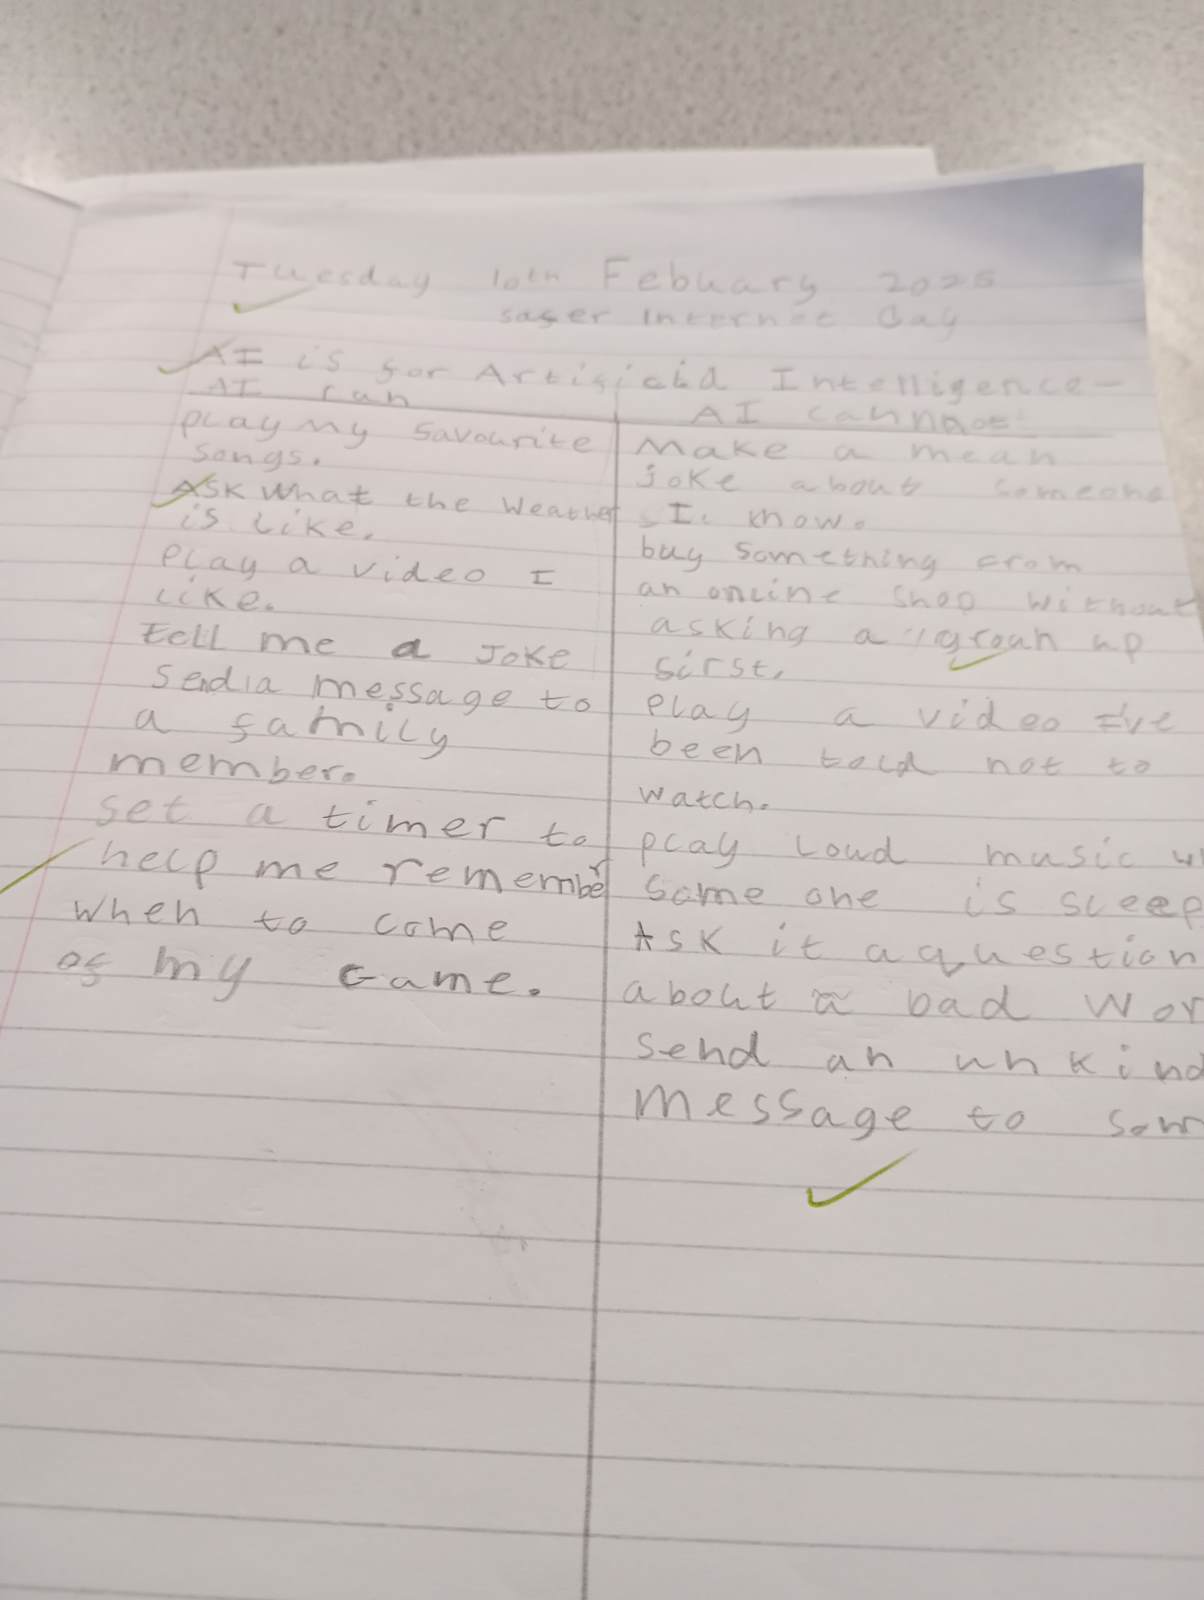 Tuesday 10th Febuary 2026
safer Internet Day
AI is for Artificid Intelligence
AI can
AI cannot
play my favourite
songs.
Ask what the weather
is like.
Play a video I
like.
tell me a Joke
Send a message to
a family
member.
set a timer to
help me remember
when to come
of my Game.
Make a mean
joke about someone
I know.
buy something from
an online shop without
asking a groun up
first.
Play a video I've
been told not to
watch.
play loud music
some one is sleep
Ask it a question
about a bad wor
send an unkind
message to som